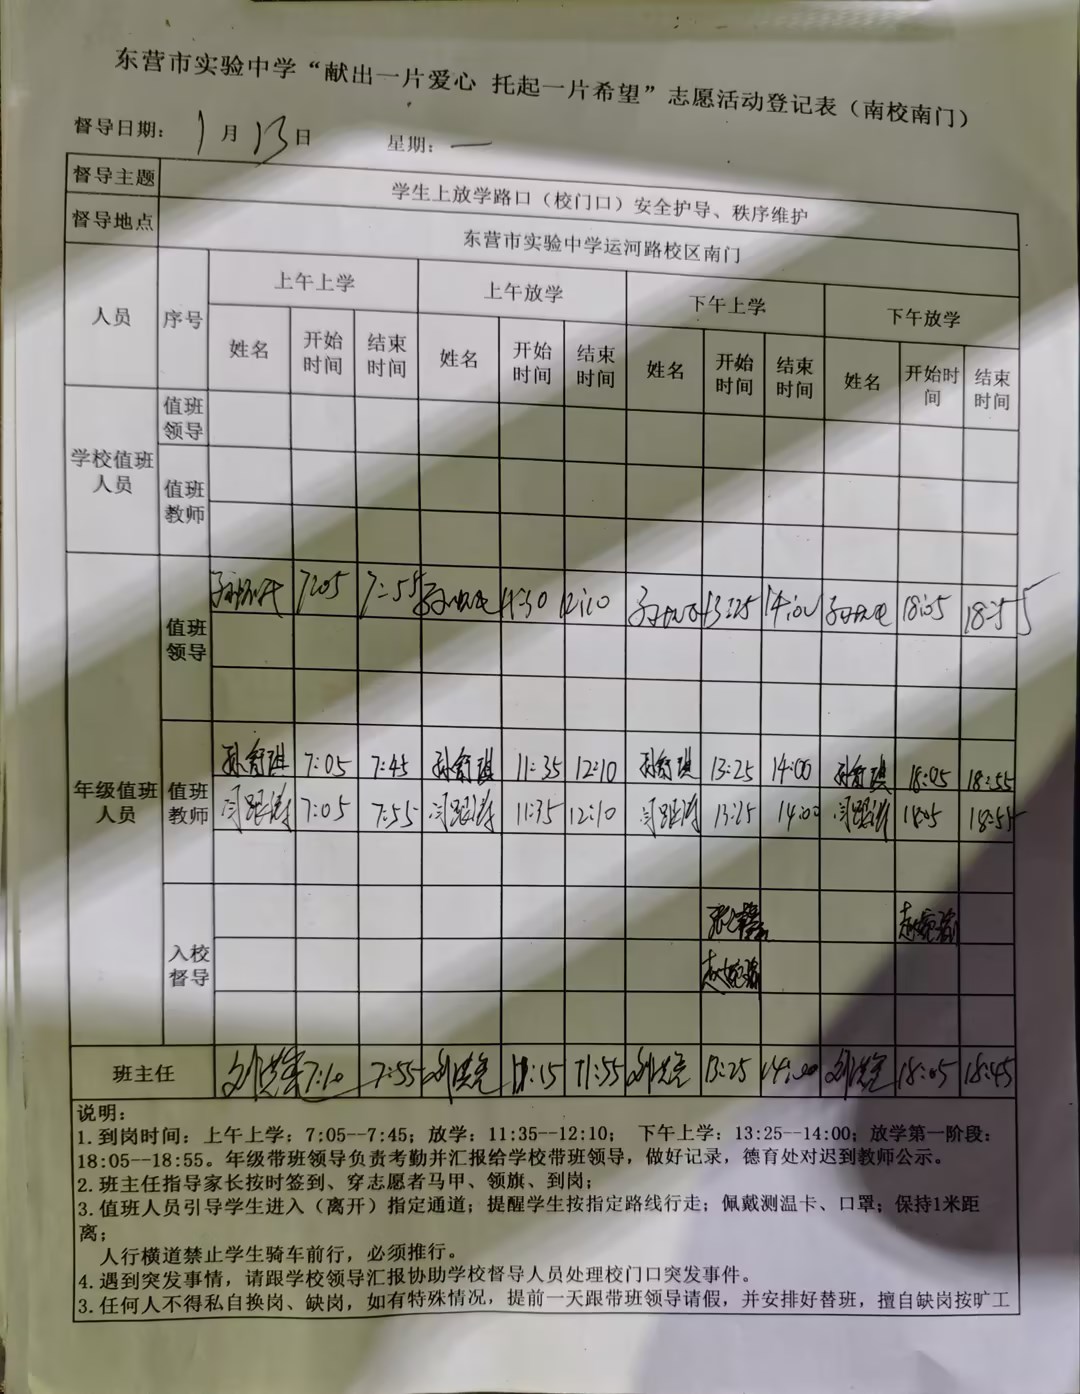 东营市实验中学“献出一片爱心 托起一片希望”志愿活动登记表（南校南门）
督导日期： 1月13日 星期：一
督导主题 学生上放学路口（校门口）安全护导、秩序维护
督导地点 东营市实验中学运河路校区南门
人员 序号 上午上学 上午放学 下午上学 下午放学
姓名 开始时间 结束时间 姓名 开始时间 结束时间 姓名 开始时间 结束时间 姓名 开始时间 结束时间
学校值班人员 值班领导
值班教师
年级值班人员 值班领导 7:05 7:55 11:30 12:10 13:25 14:00 18:05 18:55
值班教师 孙舒琪 7:05 7:45 孙舒琪 11:35 12:10 孙舒琪 13:25 14:00 孙舒琪 18:05 18:55
闫跟涛 7:05 7:55 闫跟涛 11:35 12:10 闫跟涛 13:25 14:00 闫跟涛 18:05 18:55
入校督导
班主任 7:10 7:55 11:15 11:55 13:25 14:00 18:05 18:45
说明：
1.到岗时间：上午上学：7:05--7:45；放学：11:35--12:10； 下午上学：13:25--14:00；放学第一阶段：
18:05--18:55。年级带班领导负责考勤并汇报给学校带班领导，做好记录，德育处对迟到教师公示。
2.班主任指导家长按时签到、穿志愿者马甲、领旗、到岗；
3.值班人员引导学生进入（离开）指定通道；提醒学生按指定路线行走；佩戴测温卡、口罩；保持1米距
离；
人行横道禁止学生骑车前行，必须推行。
4.遇到突发事情，请跟学校领导汇报协助学校督导人员处理校门口突发事件。
3.任何人不得私自换岗、缺岗，如有特殊情况，提前一天跟带班领导请假，并安排好替班，擅自缺岗按旷工